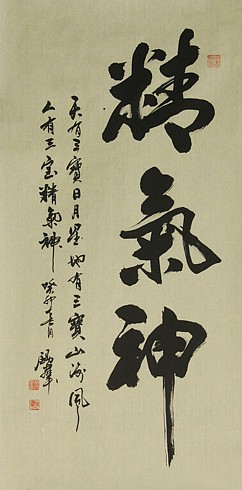 精氣神
天有三寶日月星地有三寶山河风
人有三宝精氣神 癸卯